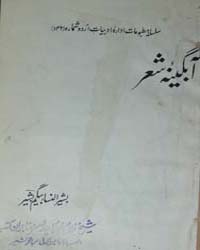 سلسلہ مطبوعات ادارۂ ادبیات اردو شمارہ (۱۳۶)
آبگینۂ شعر
بشیر النساء بیگم بشیر